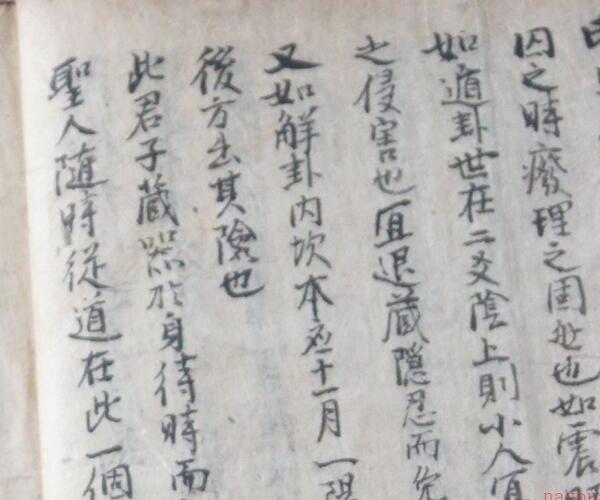 囚之時廢理之固然也如震
如遁卦世在二爻陰上則小人宜
之侵害也宜退藏隱忍而免
又如解卦内坎本应十一月一陽
後方出其險也
此君子藏器於身待時而
聖人隨時從道在此一個